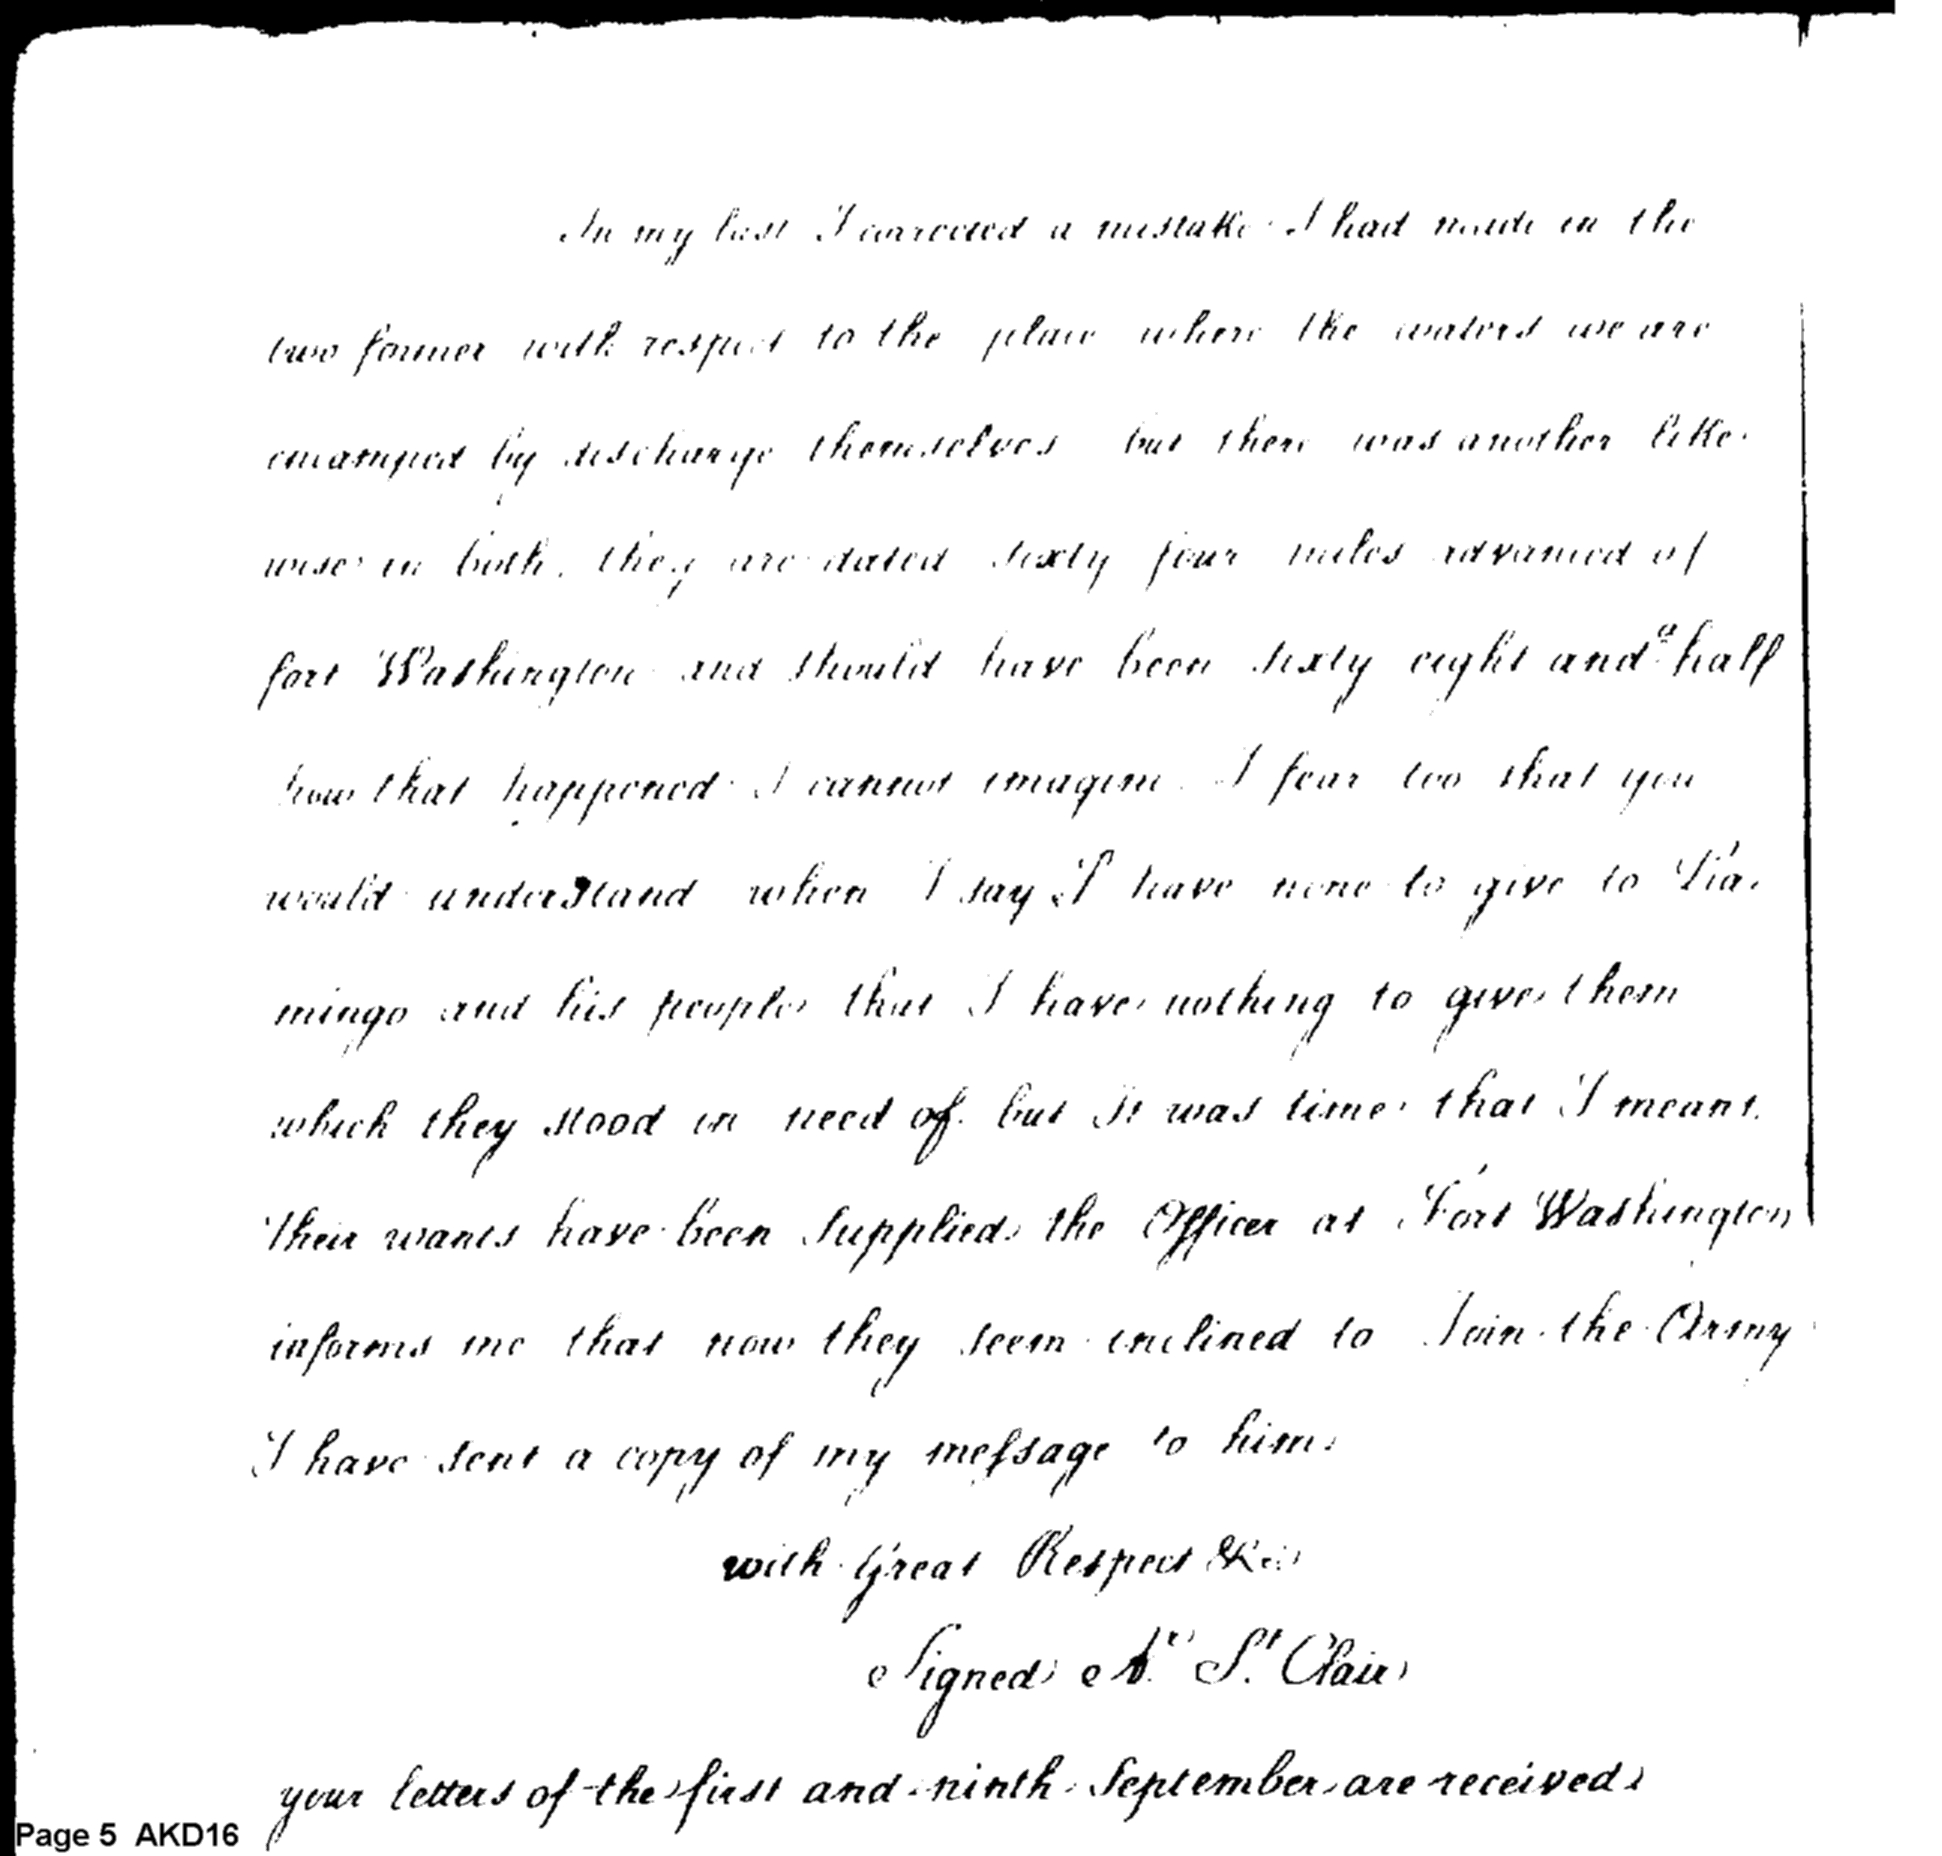 In my last I corrected a mistake I had made in the
two former with respect to the place where the waters we are
encamped by discharge themselves but there was another like
wise in both. they are dated sixty four miles advanced of
fort Washington and should have been sixty eight and a half
how that happened I cannot imagine. I fear too that you
would understand when I say I have none to give to Pia.
mingo and his people that I have nothing to give them
which they stood in need of. but It was time that I meant.
Their wants have been Supplied, the Officer at Fort Washington
informs me that now they seem inclined to Join the Army
I have sent a copy of my message to him.
with Great Respect &c.
Signed Ar. St. Clair
your letters of the first and ninth September are received
Page 5 AKD16